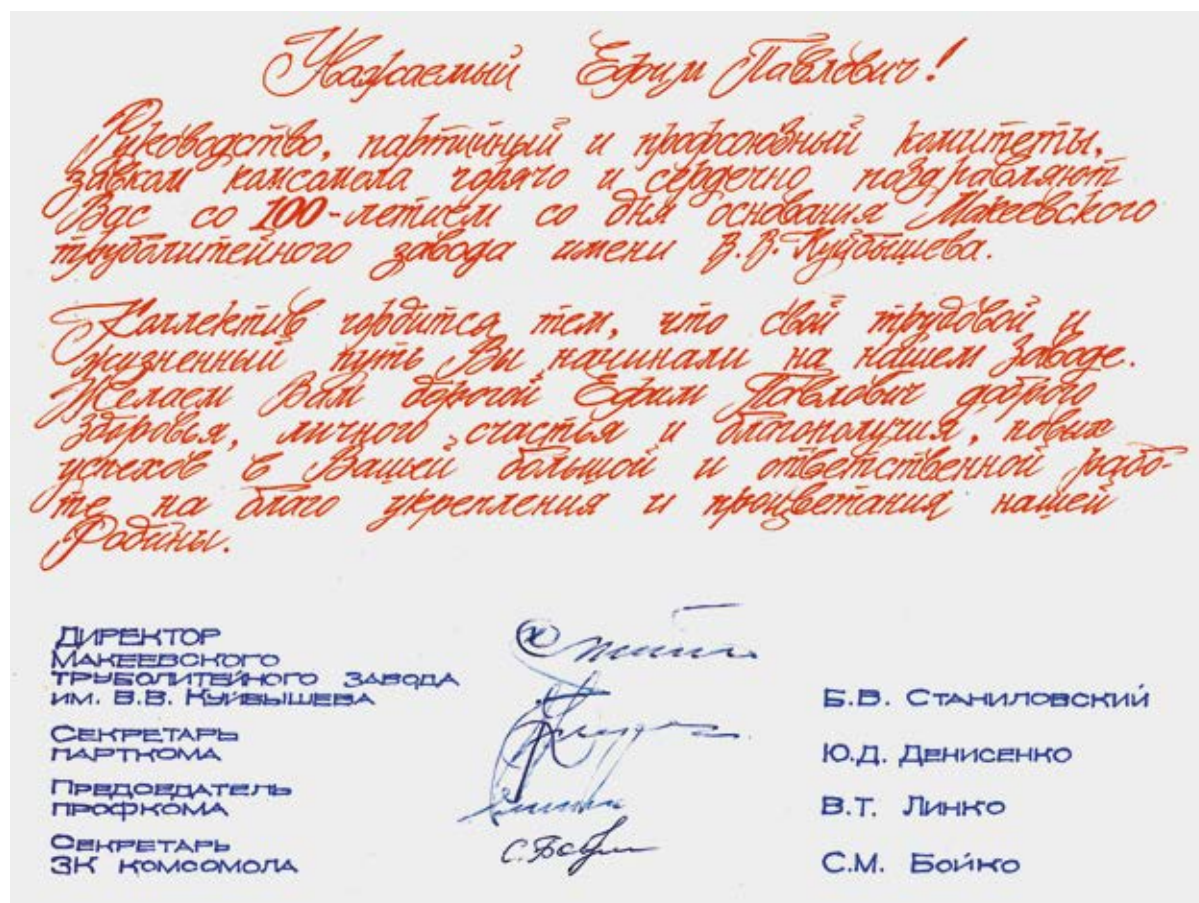 Уважаемый Ефим Павлович!
Руководство, партийный и профсоюзный комитеты,
завком комсомола горячо и сердечно поздравляют
Вас со 100-летием со дня основания Макеевского
труболитейного завода имени В.В. Куйбышева.
Коллектив гордится тем, что свой трудовой и
жизненный путь Вы начинали на нашем заводе.
Желаем Вам дорогой Ефим Павлович доброго
здоровья, личного счастья и благополучия, новых
успехов в Вашей большой и ответственной рабо-
те на благо укрепления и процветания нашей
Родины.
Директор
Макеевского
труболитейного завода
им. В.В. Куйбышева
Б.В. Станиловский
Секретарь
парткома
Ю.Д. Денисенко
Председатель
профкома
В.Т. Линко
Секретарь
ЗК комсомола
С.М. Бойко